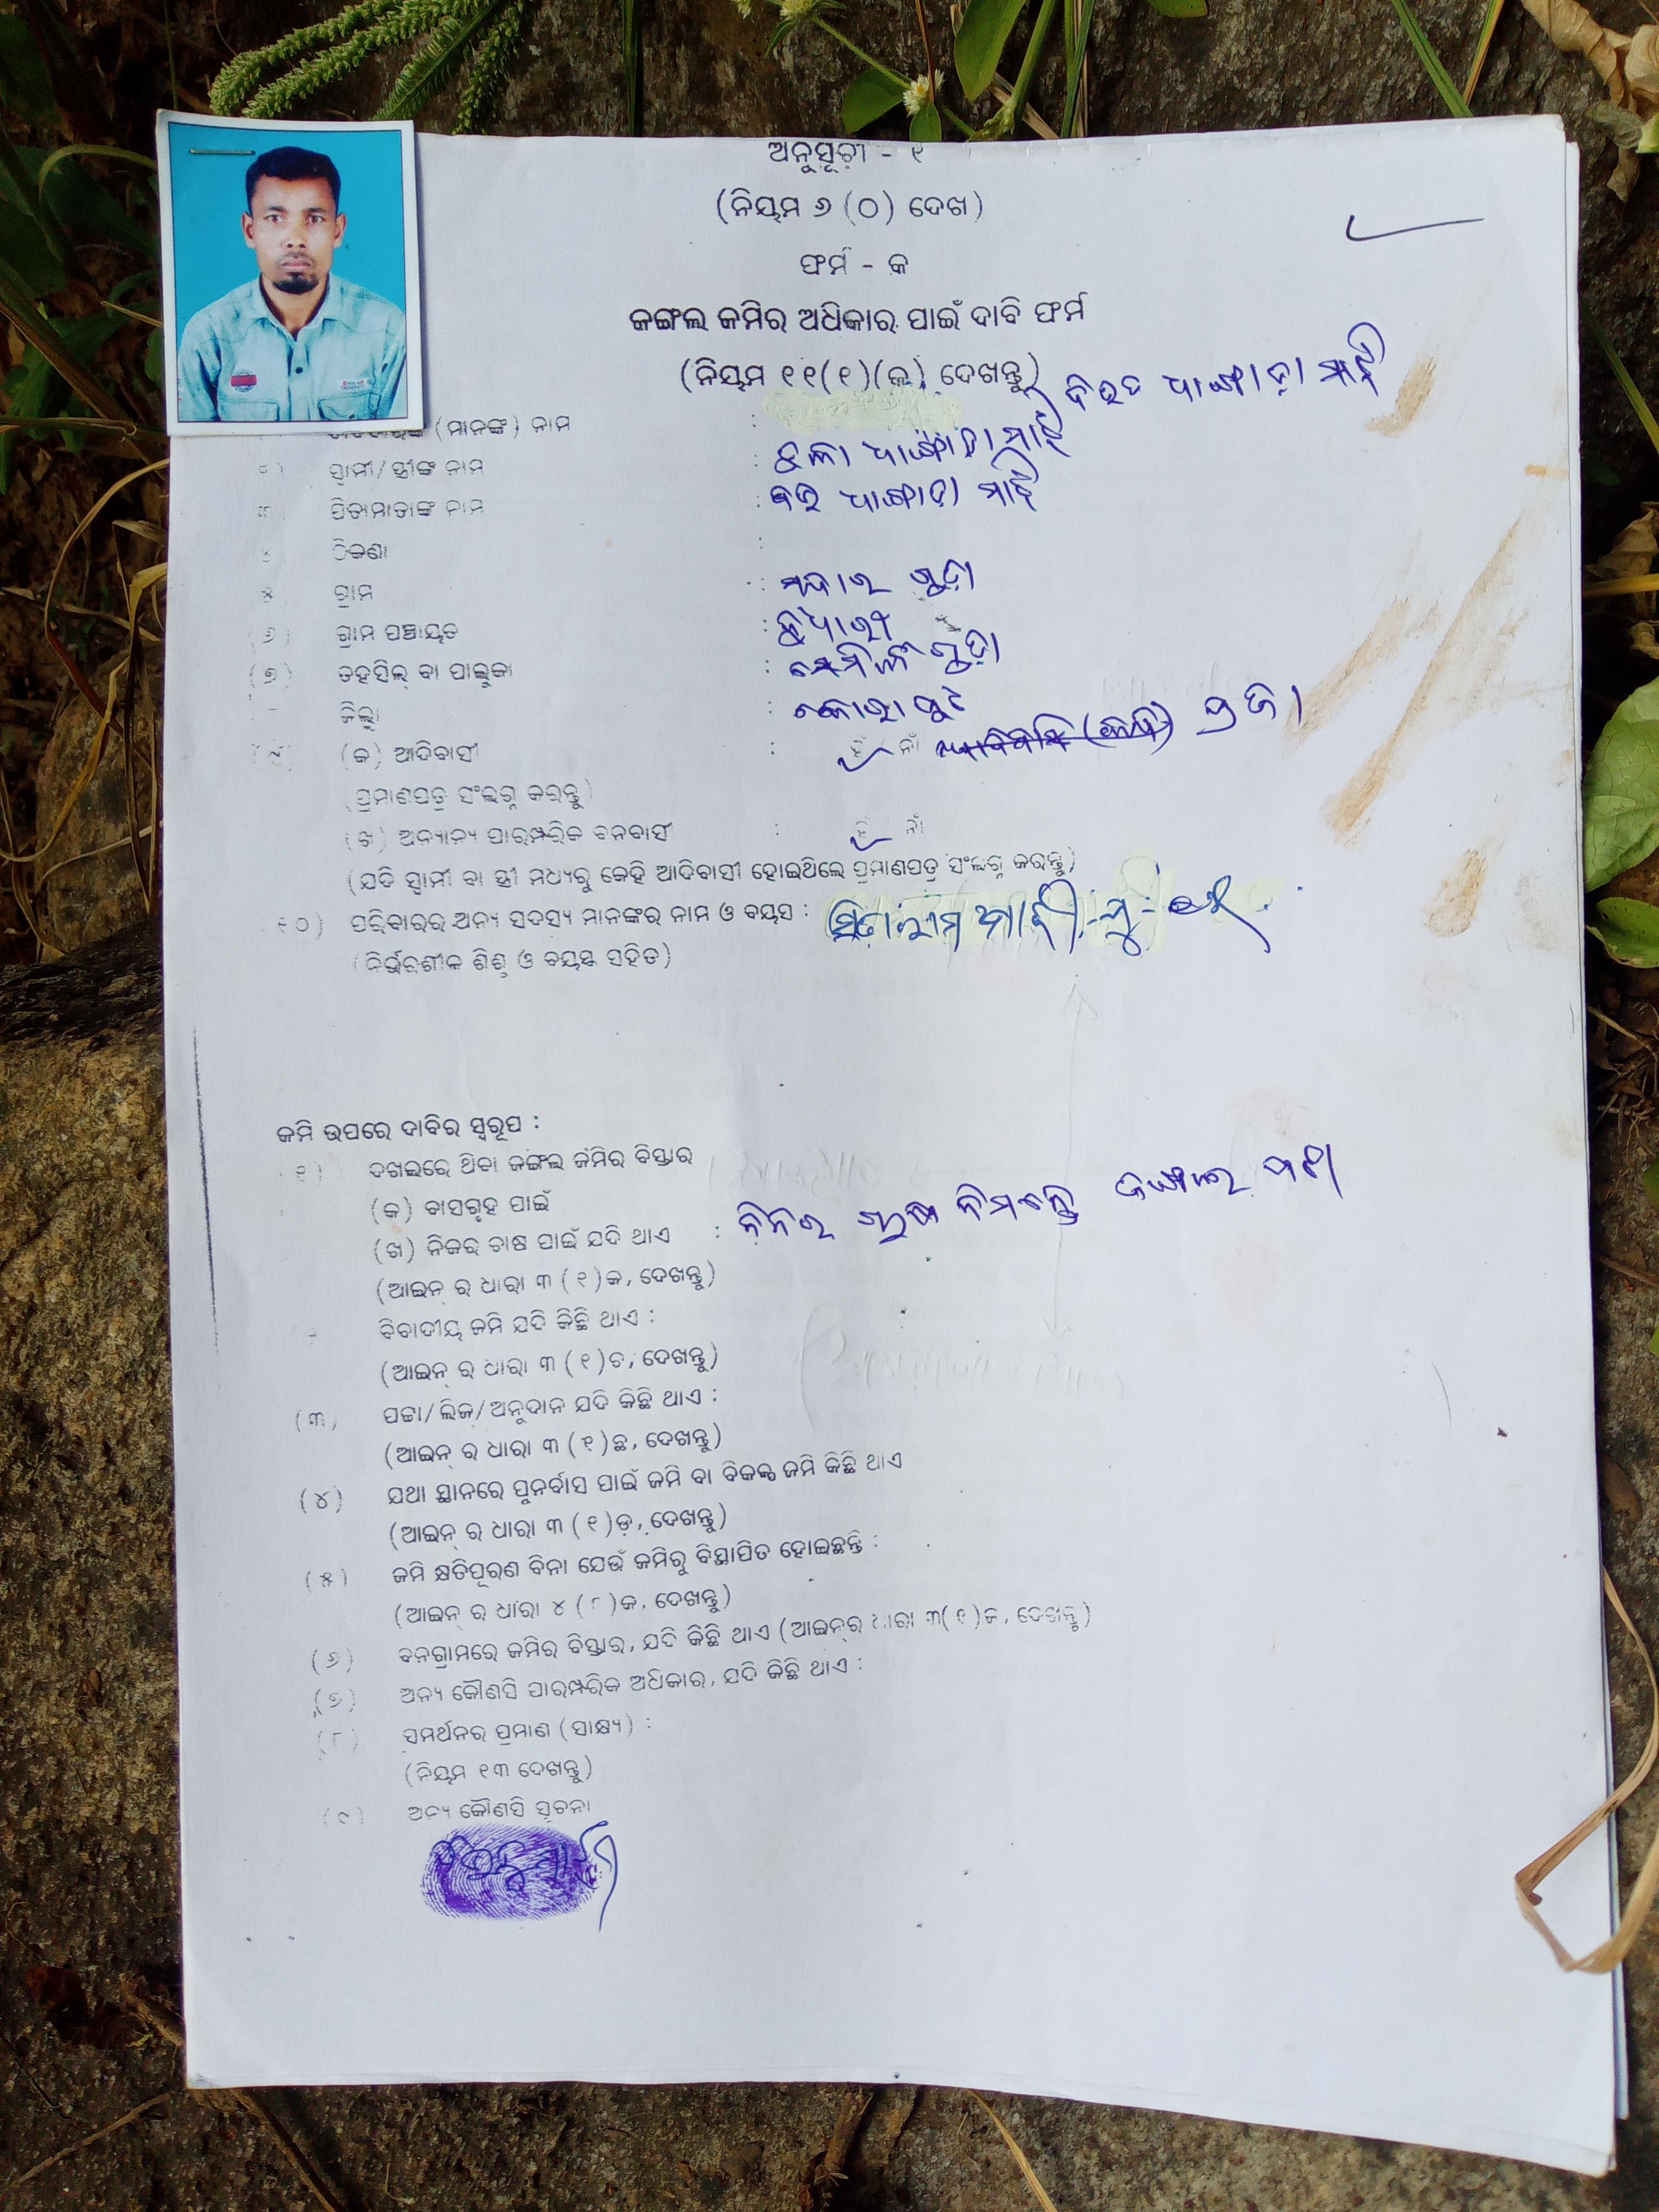 ଅନୁସୂଚୀ - ୧
(ନିୟମ ୬ (୦) ଦେଖ)
ଫର୍ମ - କ
ଜଙ୍ଗଲ ଜମିର ଅଧିକାର ପାଇଁ ଦାବି ଫର୍ମ
(ନିୟମ ୧୧(୧)(କ) ଦେଖନ୍ତୁ)
(ମାନଙ୍କ) ନାମ :
ସ୍ଵାମୀ/ସ୍ତ୍ରୀଙ୍କ ନାମ : ମାଝି
ପିତାମାତାଙ୍କ ନାମ : ମାଝି
ଠିକଣା :
ଗ୍ରାମ : ଗୁଡ଼ା
(୬) ଗ୍ରାମ ପଞ୍ଚାୟତ :
(୭) ତହସିଲ୍ ବା ତାଲୁକା : ସେମିଳିଗୁଡ଼ା
ଜିଲ୍ଲା : କୋରାପୁଟ
(୯) (କ) ଆଦିବାସୀ : ହଁ ନାଁ
(ପ୍ରମାଣପତ୍ର ସଂଲଗ୍ନ କରନ୍ତୁ)
(ଖ) ଅନ୍ୟାନ୍ୟ ପାରମ୍ପରିକ ବନବାସୀ : ହଁ ନାଁ
(ଯଦି ସ୍ଵାମୀ ବା ସ୍ତ୍ରୀ ମଧ୍ୟରୁ କେହି ଆଦିବାସୀ ହୋଇଥିଲେ ପ୍ରମାଣପତ୍ର ସଂଲଗ୍ନ କରନ୍ତୁ)
୧୦) ପରିବାରର ଅନ୍ୟ ସଦସ୍ୟ ମାନଙ୍କର ନାମ ଓ ବୟସ : ସିତାରାମ ମାଝୀ
(ନିର୍ଭରଶୀଳ ଶିଶୁ ଓ ବୟସ୍କ ସହିତ)
ଜମି ଉପରେ ଦାବିର ସ୍ଵରୂପ :
(୧) ଦଖଲରେ ଥିବା ଜଙ୍ଗଲ ଜମିର ବିସ୍ତାର
(କ) ବାସଗୃହ ପାଇଁ
(ଖ) ନିଜର ଚାଷ ପାଇଁ ଯଦି ଥାଏ : ନିଜର ଚାଷ ନିମନ୍ତେ
(ଆଇନ୍ ର ଧାରା ୩ (୧)କ, ଦେଖନ୍ତୁ)
ବିବାଦୀୟ ଜମି ଯଦି କିଛି ଥାଏ :
(ଆଇନ୍ ର ଧାରା ୩ (୧)ଚ, ଦେଖନ୍ତୁ)
(୩) ପଟ୍ଟା/ଲିଜ୍/ଅନୁଦାନ ଯଦି କିଛି ଥାଏ :
(ଆଇନ୍ ର ଧାରା ୩ (୧)ଛ, ଦେଖନ୍ତୁ)
(୪) ଯଥା ସ୍ଥାନରେ ପୁନର୍ବାସ ପାଇଁ ଜମି ବା ବିକଳ୍ପ ଜମି କିଛି ଥାଏ
(ଆଇନ୍ ର ଧାରା ୩ (୧)ଡ଼, ଦେଖନ୍ତୁ)
(୫) ଜମି କ୍ଷତିପୂରଣ ବିନା ଯେଉଁ ଜମିରୁ ବିସ୍ଥାପିତ ହୋଇଛନ୍ତି :
(ଆଇନ୍ ର ଧାରା ୪ (୮)କ, ଦେଖନ୍ତୁ)
(୬) ବନଗ୍ରାମରେ ଜମିର ବିସ୍ତାର, ଯଦି କିଛି ଥାଏ (ଆଇନ୍‌ର ଧାରା ୩(୧)ଜ, ଦେଖନ୍ତୁ)
(୭) ଅନ୍ୟ କୌଣସି ପାରମ୍ପରିକ ଅଧିକାର, ଯଦି କିଛି ଥାଏ :
(୮) ସମର୍ଥନର ପ୍ରମାଣ (ସାକ୍ଷ୍ୟ) :
(ନିୟମ ୧୩ ଦେଖନ୍ତୁ)
(୯) ଅନ୍ୟ କୌଣସି ସୂଚନା